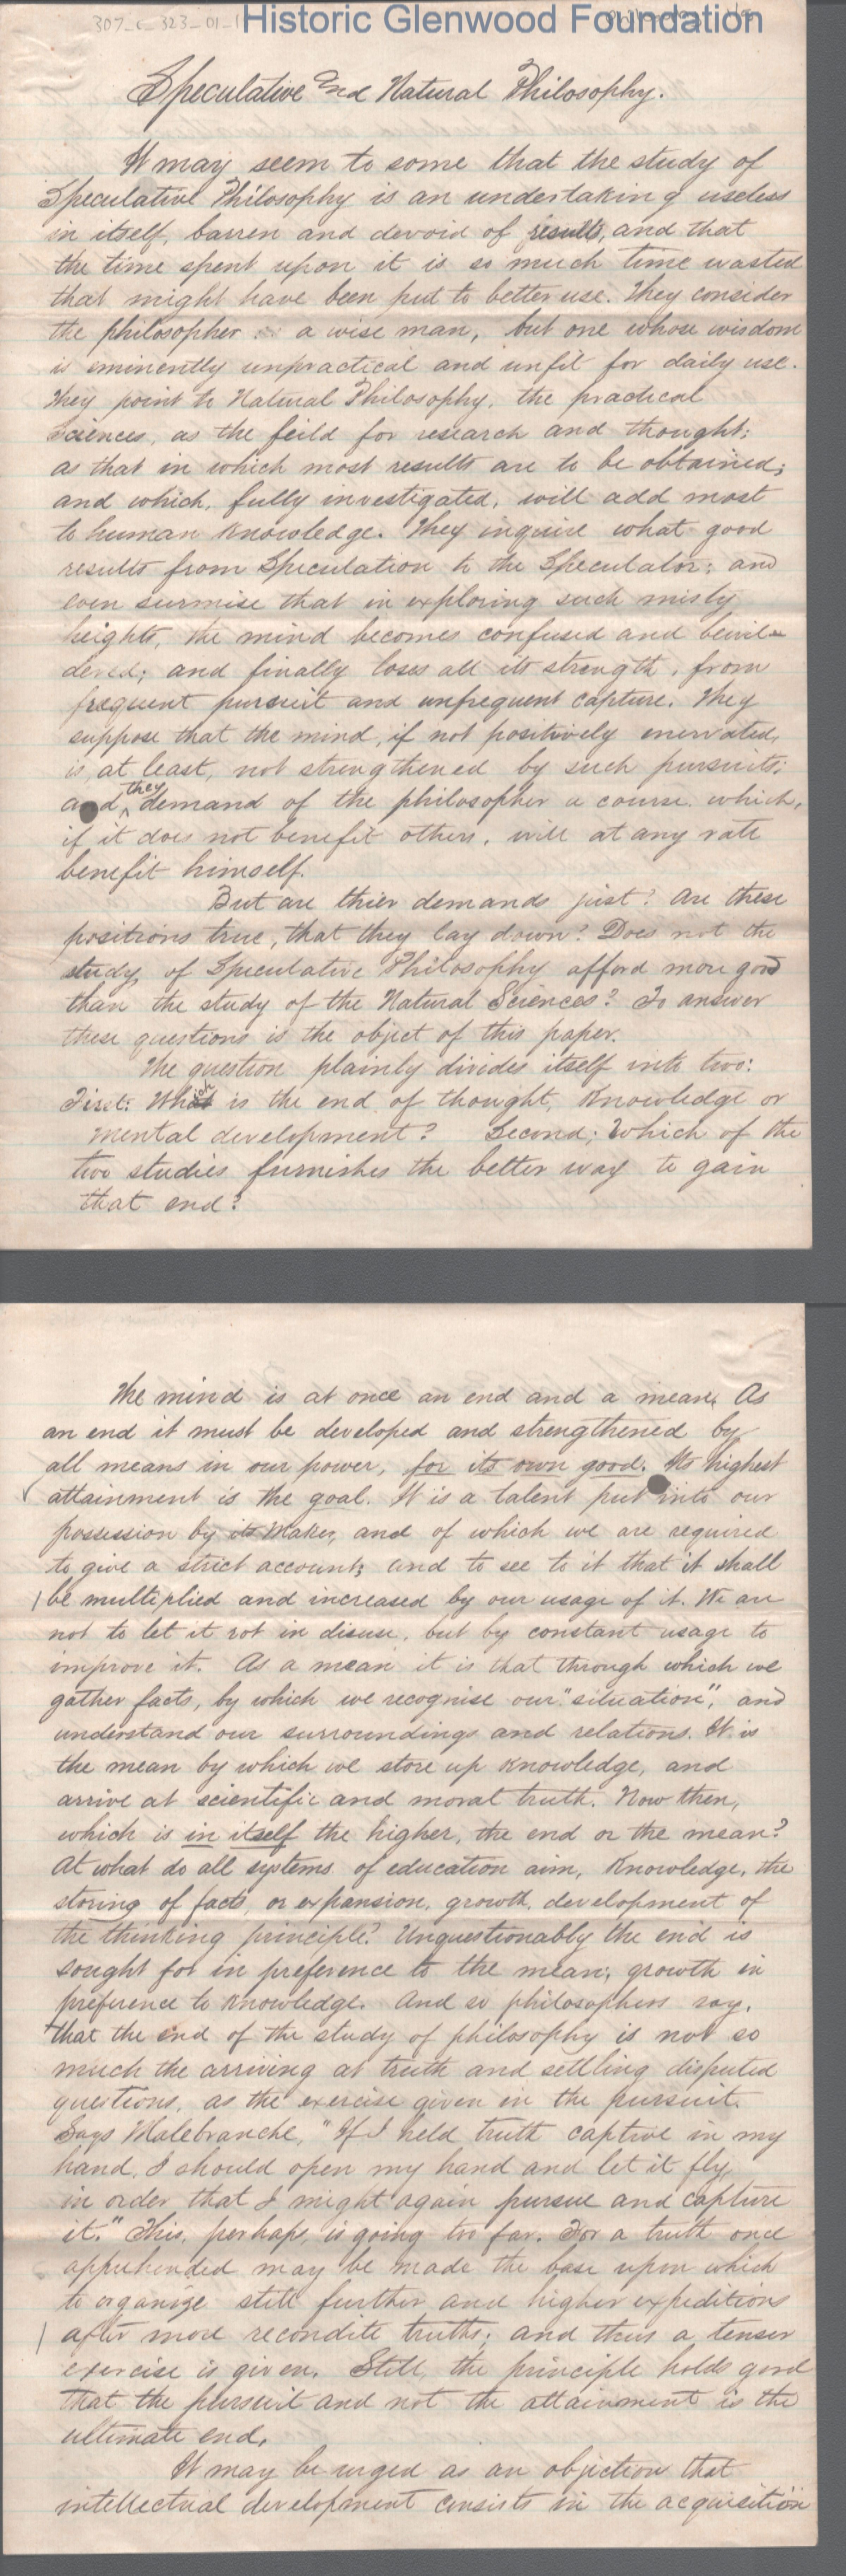 307_c_323_01_1
Historic Glenwood Foundation
Speculative And Natural Philosophy.
It may seem to some that the study of
Speculative Philosophy is an undertaking useless
in itself, barren and devoid of results, and that
the time spent upon it is so much time wasted
that might have been put to better use. They consider
the philosopher a wise man, but one whose wisdom
is eminently unpractical and unfit for daily use.
They point to Natural Philosophy, the practical
Sciences, as the feild for research and thought;
as that in which most results are to be obtained;
and which, fully investigated, will add most
to human knowledge. They inquire what good
results from Speculation to the Speculator; and
even surmise that in exploring such misty
heights, the mind becomes confused and bewil-
dered; and finally loses all its strength, from
frequent pursuit and unfrequent capture. They
suppose that the mind, if not positively enervated,
is, at least, not strengthened by such pursuits;
and they demand of the philosopher a course which,
if it does not benefit others, will at any rate
benefit himself.
But are thier demands just? Are these
positions true, that they lay down? Does not the
study of Speculative Philosophy afford more good
than the study of the Natural Sciences? To answer
these questions is the object of this paper.
The question plainly divides itself into two:
First: Which is the end of thought, Knowledge or
mental development? Second; Which of the
two studies furnishes the better way to gain
that end?
The mind is at once an end and a mean. As
an end it must be developed and strengthened by
all means in our power, for its own good. Its highest
attainment is the goal. It is a talent put into our
possession by its Maker, and of which we are required
to give a strict account; and to see to it that it shall
be multiplied and increased by our usage of it. We are
not to let it rot in disuse, but by constant usage to
improve it. As a mean it is that through which we
gather facts, by which we recognise our "situation", and
understand our surroundings and relations. It is
the mean by which we store up knowledge, and
arrive at scientific and moral truth. Now then,
which is in itself the higher, the end or the mean?
At what do all systems of education aim, Knowledge, the
storing of facts, or expansion, growth, development of
the thinking principle? Unquestionably the end is
sought for in preference to the mean; growth in
preference to knowledge. And so philosophers say,
that the end of the study of philosophy is not so
much the arriving at truth and settling disputed
questions, as the exercise given in the pursuit.
Says Malebranche, "If I held truth captive in my
hand, I should open my hand and let it fly,
in order that I might again pursue and capture
it." This, perhaps, is going too far. For a truth once
apprehended may be made the base upon which
to organize still further and higher expeditions
after more recondite truths; and thus a tenser
exercise is given. Still, the principle holds good
that the pursuit and not the attainment is the
ultimate end.
It may be urged as an objection that
intellectual development consists in the acquisition